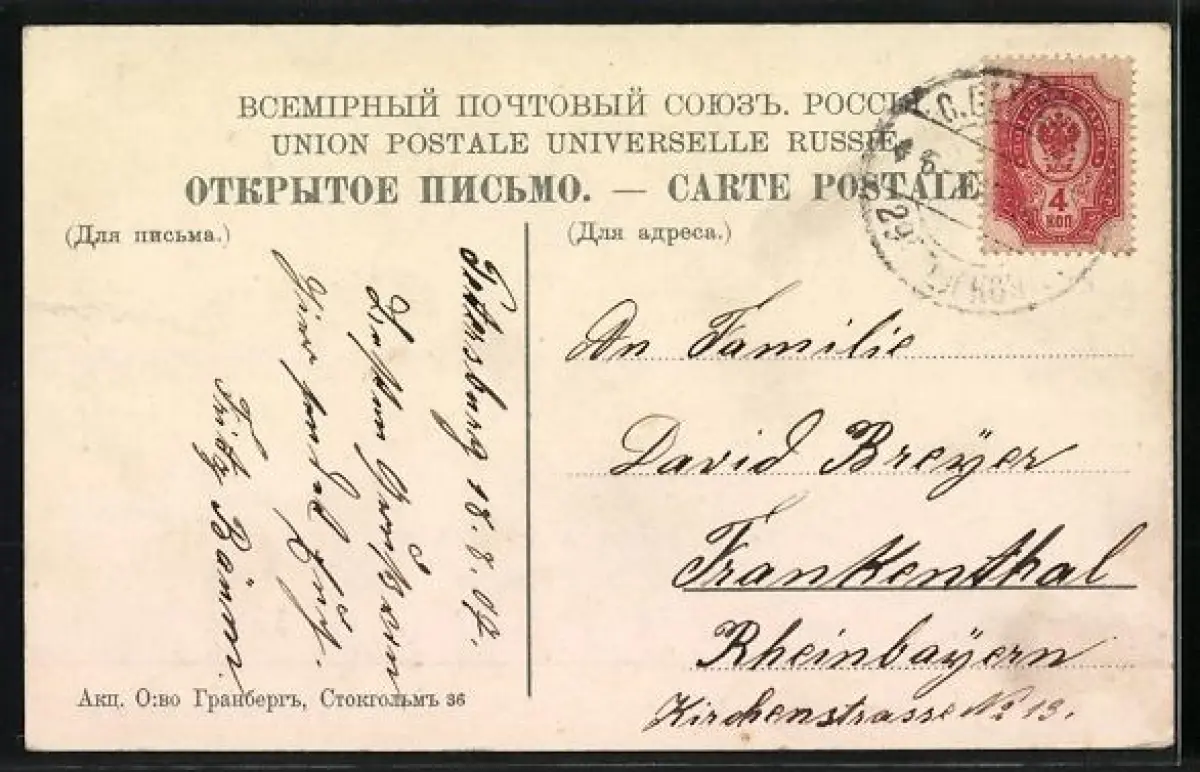 ВСЕМІРНЫЙ ПОЧТОВЫЙ СОЮЗЪ. РОССІЯ
UNION POSTALE UNIVERSELLE RUSSIE
ОТКРЫТОЕ ПИСЬМО. — CARTE POSTALE
(Для письма.)
(Для адреса.)
4
КОП
Petersburg 18. 8. 07.
Besten Gruß von
Fritz Bömm.
An Familie
David Breyer
Frankenthal
Rheinbayern
Kirchenstrasse No 13.
Акц. О:во Гранбергъ, Стокгольмъ 36